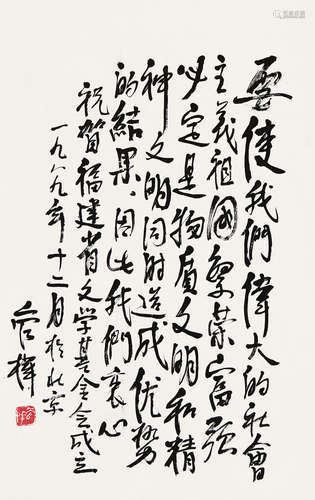 要使我們偉大的社會
主義祖國繁荣富强
必定是物质文明和精
神文明同时造成优势
的結果、因此我們衷心
祝賀福建省文学基金会成立
一九八九年十二月於北京
管樺